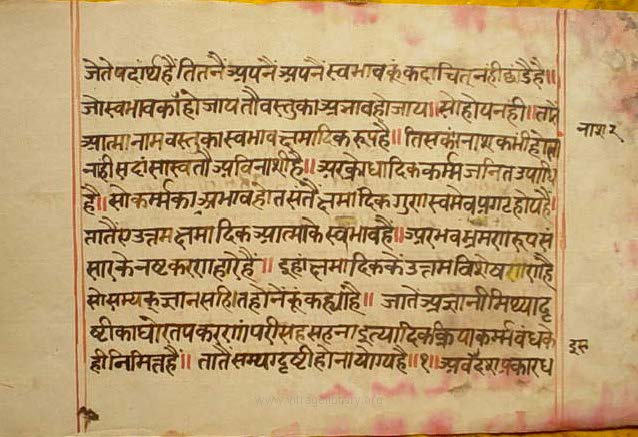 जेते पदार्थ हैं तितनैं अपनैं अपनैं स्वभावकूं कदाचित् नंही छांडै है॥
जो स्वभाव का नाश हो जाय तौ वस्तु का अभाव हो जाय॥ सो होय नही॥ तातैं
आत्मा नाम वस्तु का स्वभाव क्षमादिक रूप है॥ तिसका नाश कभी होता
नाही सदां सास्वतौ अविनाशी है॥ अर क्रोधादिक कर्म्म जनित उपाधि
है॥ सो कर्म्म का अभाव होत सतैं क्षमादिक गुण स्वमेव प्रगट होय हैं॥
तातैं ए उत्तम क्षमादिक आत्मा के स्वभाव है॥ अर भव भ्रमण रूप सं
सार के नष्ट करणहारे हैं॥ इहां क्षमादिक कैं उत्तम विशेषण है
सो सम्यक् ज्ञान सहित होनेंकूं कह्या है॥ जातें अज्ञानी मिथ्यादृ
ष्टी का घोर तप करणां परीसह सहना इत्यादिक क्रिया कर्म्म बंध के
ही निमित्त है॥ तातैं सम्यग्दृष्टी होना योग्य है॥१॥ अब दश प्रकार ध
नाश २
इस
www.vitragelibrary.org